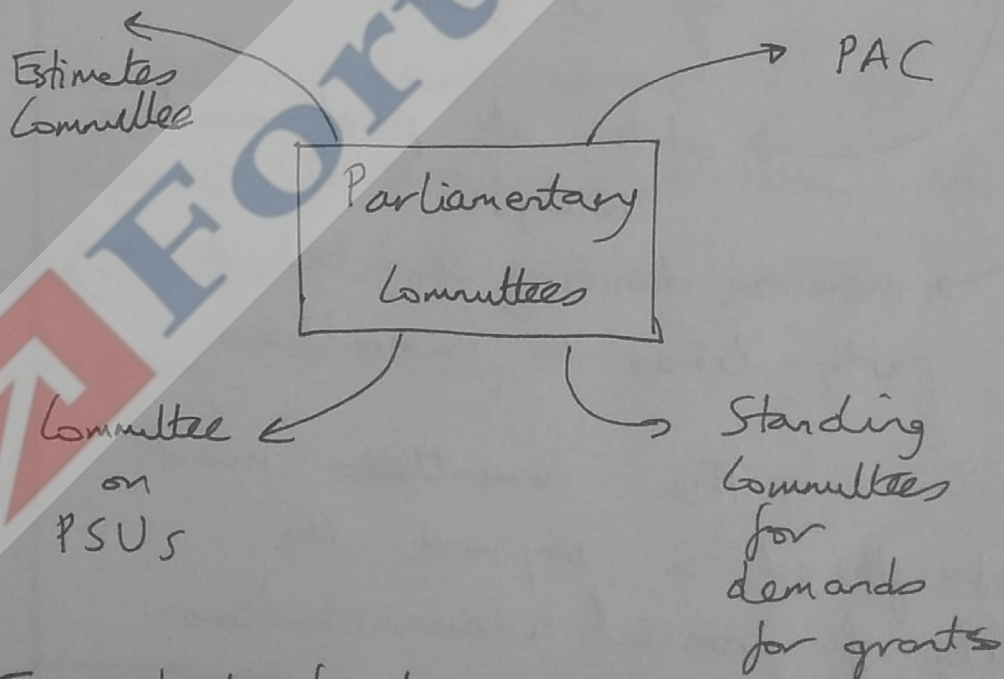 Estimates
Committee
PAC
Parliamentary
Committees
Committee
on
PSUs
Standing
Committees
for
demands
for grants